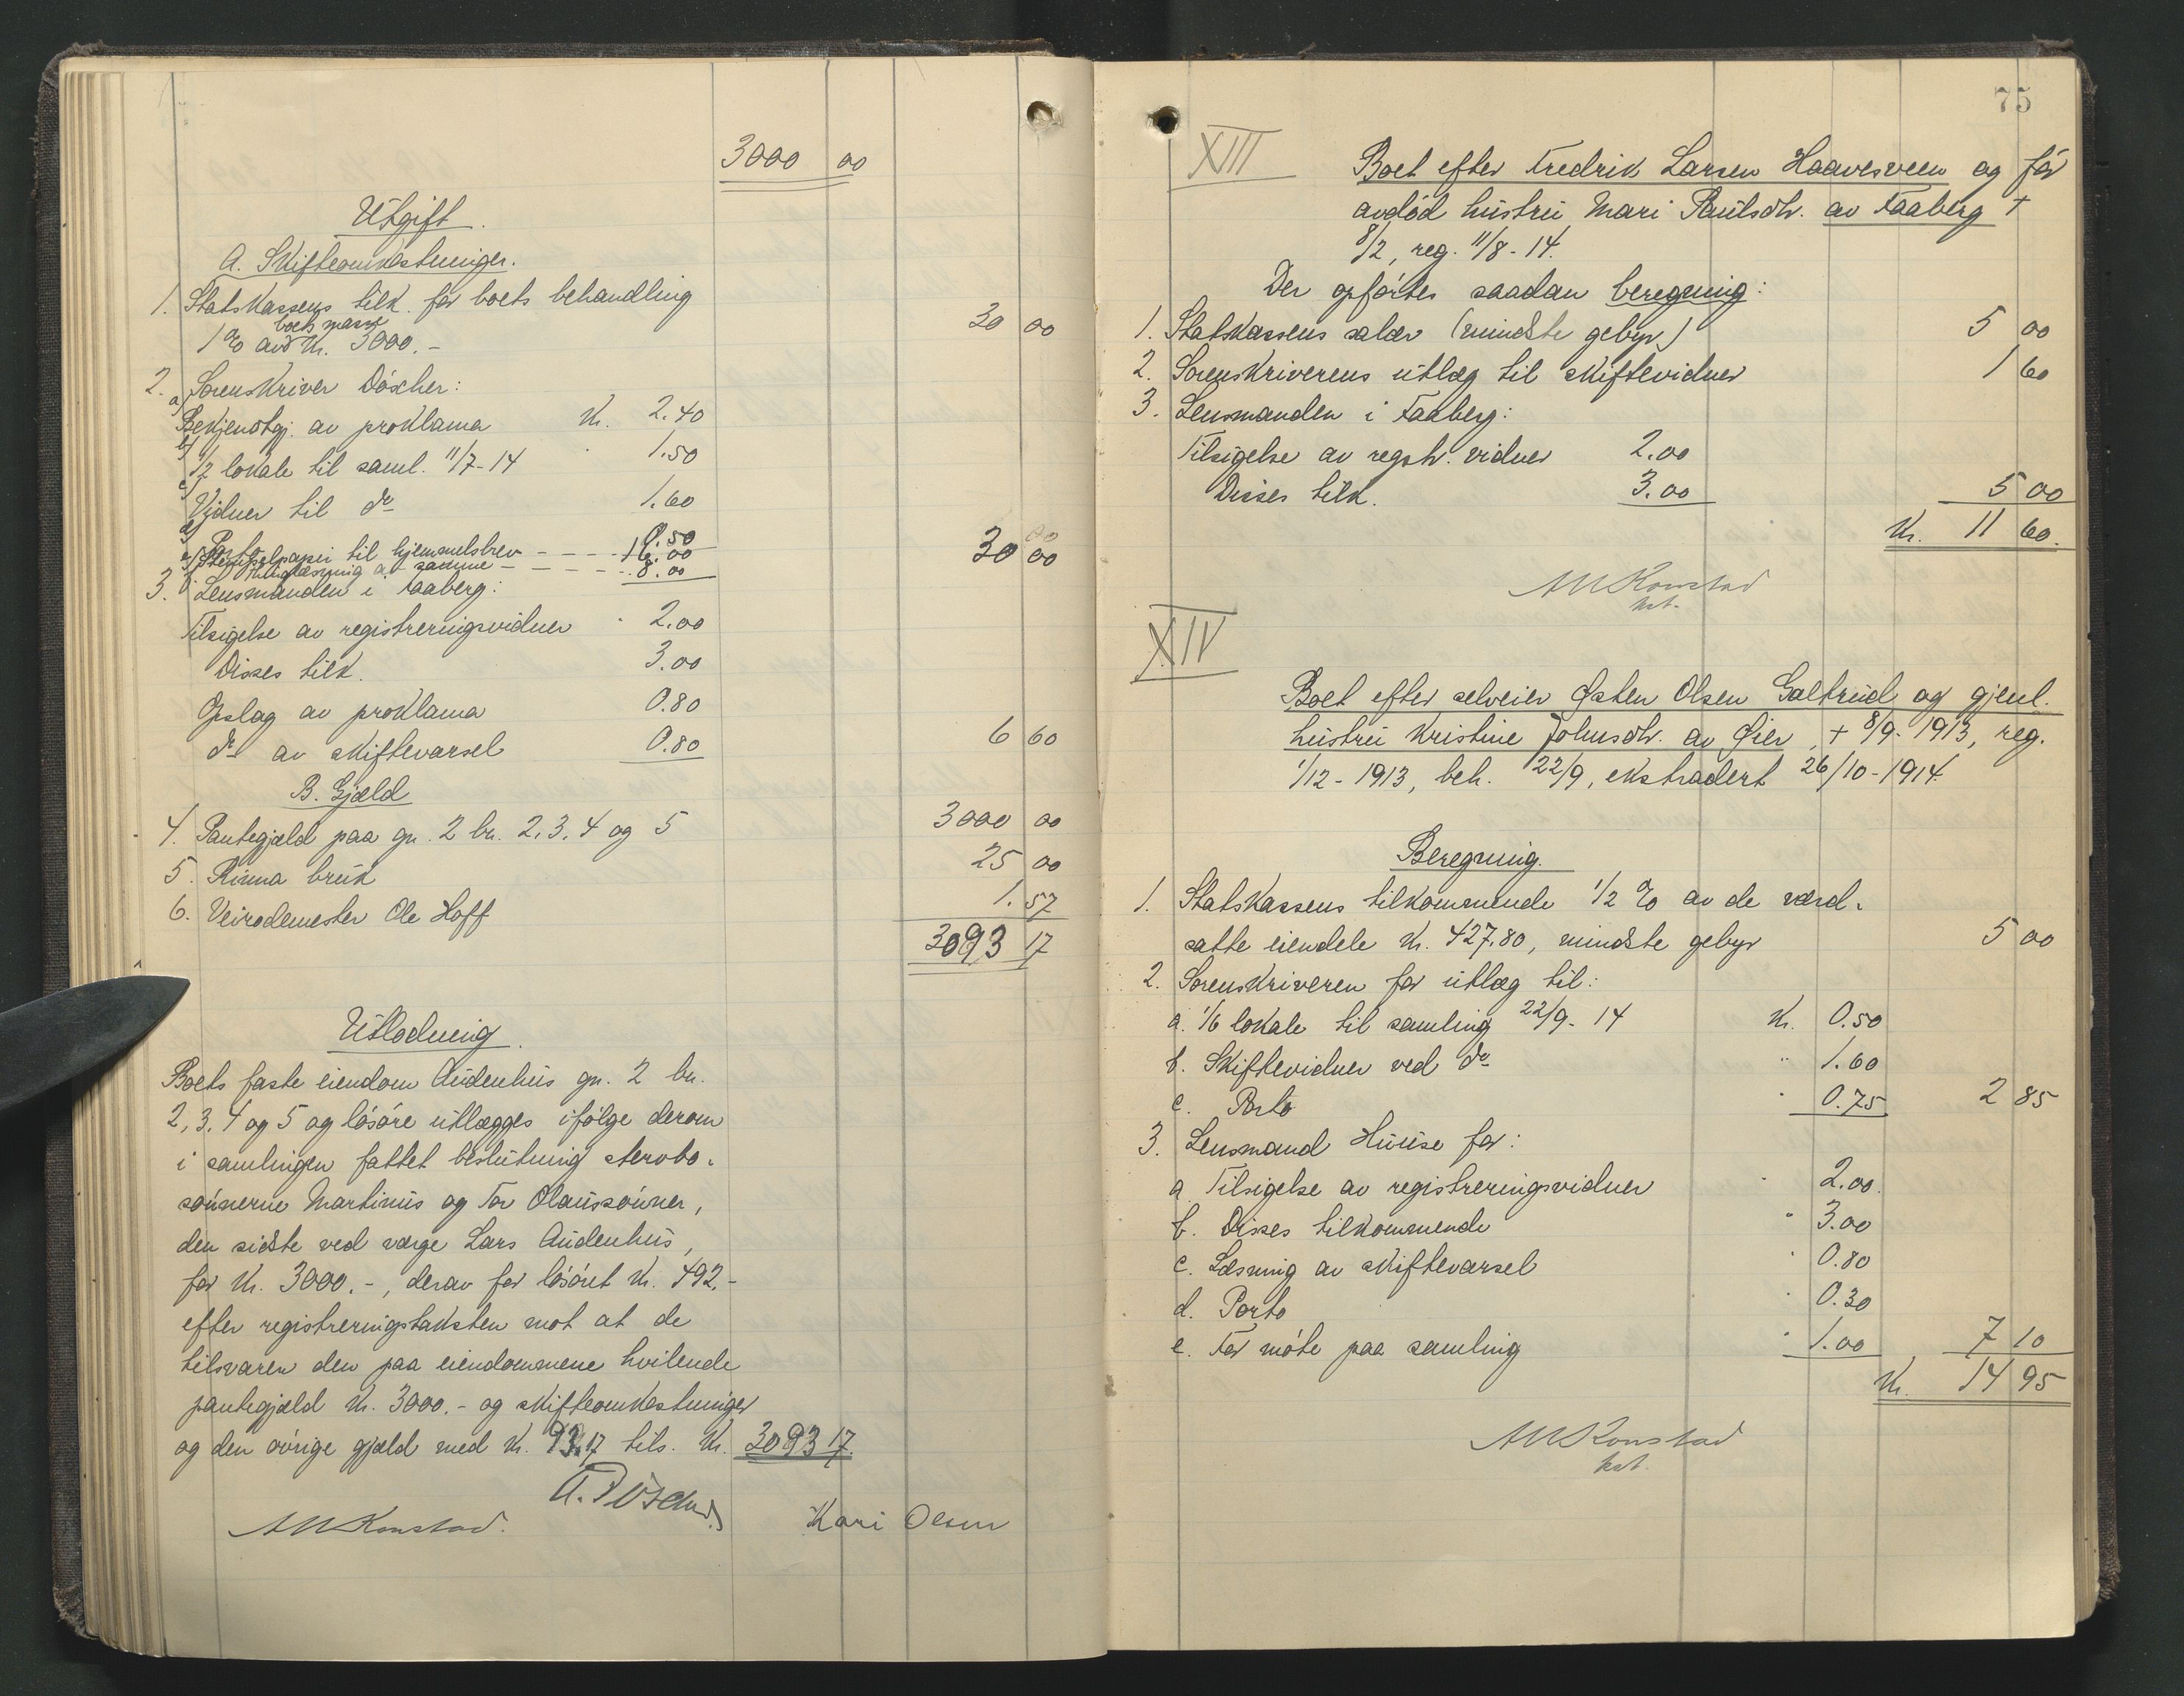 3000 00
Utgift.
A. Skifteomkostninger.
1. Statskassens tilk. for boets behandling
boets masse
1 % av Kr. 3000.- 30 00
2. Sorenskriver Döscher:
a) Bekjendtgj. av proklama Kr. 2.40
b) 1/2 lokale til saml. 11/7-14 " 1.50
c) Vidner til do 1.60
d) Porto 0.50
e) Stempelpapir til hjemmelsbrev - - - - 16.00 30 00
Tinglæsning av samme - - - - - 8.00
3. Lensmanden i Faaberg:
Tilsigelse av registreringsvidner " 2.00
Disses tilk. 3.00
Opslag av proklama 0.80
do av skiftevarsel 0.80 6 60
B. Gjæld
4. Pantegjæld paa gn. 2 bn. 2, 3, 4 og 5 3000 00
5. Rinna bruk 25 00
6. Veirodemester Ole Hoff 1.57
3093 17
Utlodning.
Boets faste eiendom Audenhus gn. 2 bn.
2, 3, 4 og 5 og lösöre utlægges ifölge derom
i samlingen fattet beslutning stervbo-
sönnerne Martinus og Tor Olaussönner,
den sidste ved værge Lars Audenhus,
for Kr. 3000.-, derav for lösöret Kr. 492,-
efter registreringstaksten mot at de
tilsvarer den paa eiendommene hvilende
pantegjæld Kr. 3000.- og skifteomkostninger
og den övrige gjæld med Kr. 93.17 tils. Kr. 3093 17.
A. Döscher
AM Konstad. Kari Olsen
75
XIII
Boet efter Fredrik Larsen Haavesveen ogför
avdöd hustru Mari Paulsdtr. av Faaberg +
8/2, reg. 11/8-14.
Der opförtes saadan beregning:
1. Statskassens salær (mindste gebyr) 5 00
2. Sorenskriverens utlæg til skiftevidner 1 60
3. Lensmanden i Faaberg:
Tilsigelse av regstr. vidner 2.00
Disses tilk. 3.00 5 00
Kr. 11 60.
AM Konstad
kst.
XIV
Boet efter selveier Østen Olsen Galtrud og gjenl.
hustru Kristine Johnsdtr. av Øier, + 8/9-1913, reg.
1/12-1913, beh. 22/9, ekstradert 26/10-1914.
Beregning.
1. Statskassens tilkommende 1/2 % av de værd-
satte eiendele Kr. 427,80, mindste gebyr 5 00
2. Sorenskriveren for utlæg til:
a. 1/6 lokale til samling 22/9-14 Kr. 0.50
b. Skiftevidner ved do " 1.60
c. Porto " 0.75 2 85
3. Lensmand Huuse for:
a. Tilsigelse av registreringsvidner " 2.00.
b. Disses tilkommende " 3.00
c. Læsning av skiftevarsel " 0.80
d. Porto " 0.30
e. For möte paa samling " 1.00 7 10
Kr. 14 95
AM Konstad
kst.